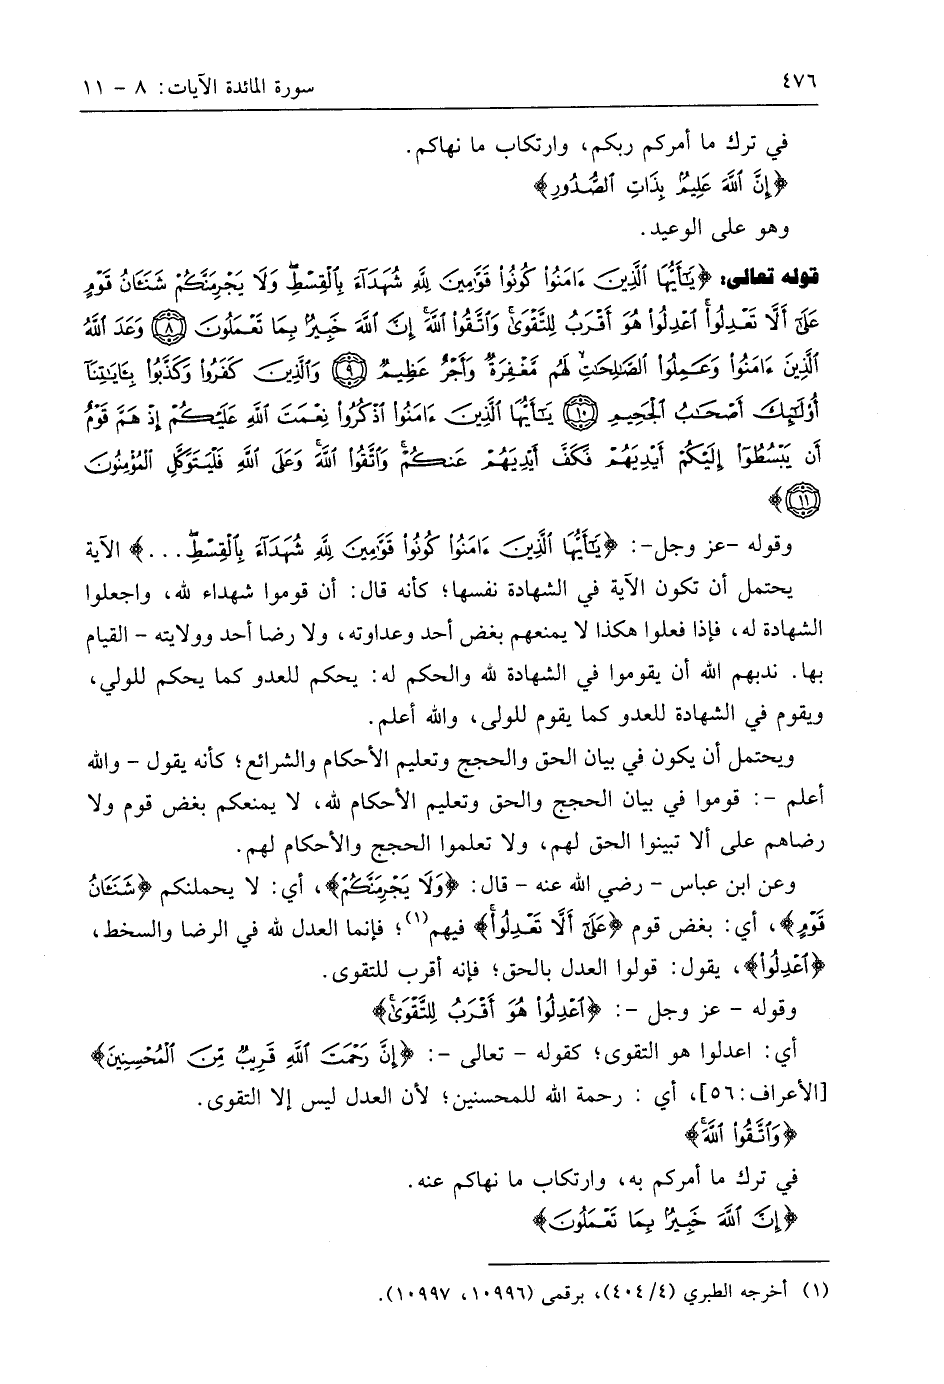 ٤٧٦ سورة المائدة الآيات: ٨ - ١١
في ترك ما أمركم ربكم، وارتكاب ما نهاكم.
﴿إِنَّ ٱللَّهَ عَلِيمٌۢ بِذَاتِ ٱلصُّدُورِ﴾
وهو على الوعيد.
قوله تعالى: ﴿يَٰٓأَيُّهَا ٱلَّذِينَ ءَامَنُوا۟ كُونُوا۟ قَوَّٰمِينَ لِلَّهِ شُهَدَآءَ بِٱلْقِسْطِ ۖ وَلَا يَجْرِمَنَّكُمْ شَنَـَٔانُ قَوْمٍ
عَلَىٰٓ أَلَّا تَعْدِلُوا۟ ۚ ٱعْدِلُوا۟ هُوَ أَقْرَبُ لِلتَّقْوَىٰ ۖ وَٱتَّقُوا۟ ٱللَّهَ ۚ إِنَّ ٱللَّهَ خَبِيرٌۢ بِمَا تَعْمَلُونَ ﴿٨﴾ وَعَدَ ٱللَّهُ
ٱلَّذِينَ ءَامَنُوا۟ وَعَمِلُوا۟ ٱلصَّٰلِحَٰتِ ۙ لَهُم مَّغْفِرَةٌ وَأَجْرٌ عَظِيمٌ ﴿٩﴾ وَٱلَّذِينَ كَفَرُوا۟ وَكَذَّبُوا۟ بِـَٔايَٰتِنَآ
أُو۟لَٰٓئِكَ أَصْحَٰبُ ٱلْجَحِيمِ ﴿١٠﴾ يَٰٓأَيُّهَا ٱلَّذِينَ ءَامَنُوا۟ ٱذْكُرُوا۟ نِعْمَتَ ٱللَّهِ عَلَيْكُمْ إِذْ هَمَّ قَوْمٌ
أَن يَبْسُطُوٓا۟ إِلَيْكُمْ أَيْدِيَهُمْ فَكَفَّ أَيْدِيَهُمْ عَنكُمْ ۖ وَٱتَّقُوا۟ ٱللَّهَ ۚ وَعَلَى ٱللَّهِ فَلْيَتَوَكَّلِ ٱلْمُؤْمِنُونَ
﴿١١﴾﴾
وقوله -عز وجل-: ﴿يَٰٓأَيُّهَا ٱلَّذِينَ ءَامَنُوا۟ كُونُوا۟ قَوَّٰمِينَ لِلَّهِ شُهَدَآءَ بِٱلْقِسْطِ ۖ...﴾ الآية
يحتمل أن تكون الآية في الشهادة نفسها؛ كأنه قال: أن قوموا شهداء لله، واجعلوا
الشهادة له، فإذا فعلوا هكذا لا يمنعهم بغض أحد وعداوته، ولا رضا أحد وولايته - القيام
بها. ندبهم الله أن يقوموا في الشهادة لله والحكم له: يحكم للعدو كما يحكم للولي،
ويقوم في الشهادة للعدو كما يقوم للولى، والله أعلم.
ويحتمل أن يكون في بيان الحق والحجج وتعليم الأحكام والشرائع؛ كأنه يقول - والله
أعلم -: قوموا في بيان الحجج والحق وتعليم الأحكام لله، لا يمنعكم بغض قوم ولا
رضاهم على ألا تبينوا الحق لهم، ولا تعلموا الحجج والأحكام لهم.
وعن ابن عباس - رضي الله عنه - قال: ﴿وَلَا يَجْرِمَنَّكُمْ﴾، أي: لا يحملنكم ﴿شَنَـَٔانُ
قَوْمٍ﴾، أي: بغض قوم ﴿عَلَىٰٓ أَلَّا تَعْدِلُوا۟ ۚ﴾ فيهم(١)؛ فإنما العدل لله في الرضا والسخط،
﴿ٱعْدِلُوا۟﴾، يقول: قولوا العدل بالحق؛ فإنه أقرب للتقوى.
وقوله - عز وجل -: ﴿ٱعْدِلُوا۟ هُوَ أَقْرَبُ لِلتَّقْوَىٰ ۖ﴾
أي: اعدلوا هو التقوى؛ كقوله - تعالى -: ﴿إِنَّ رَحْمَتَ ٱللَّهِ قَرِيبٌ مِّنَ ٱلْمُحْسِنِينَ﴾
[الأعراف:٥٦]، أي : رحمة الله للمحسنين؛ لأن العدل ليس إلا التقوى.
﴿وَٱتَّقُوا۟ ٱللَّهَ ۚ﴾
في ترك ما أمركم به، وارتكاب ما نهاكم عنه.
﴿إِنَّ ٱللَّهَ خَبِيرٌۢ بِمَا تَعْمَلُونَ﴾
(١) أخرجه الطبري (٤/٤٠٤)، برقمى (١٠٩٩٦، ١٠٩٩٧).